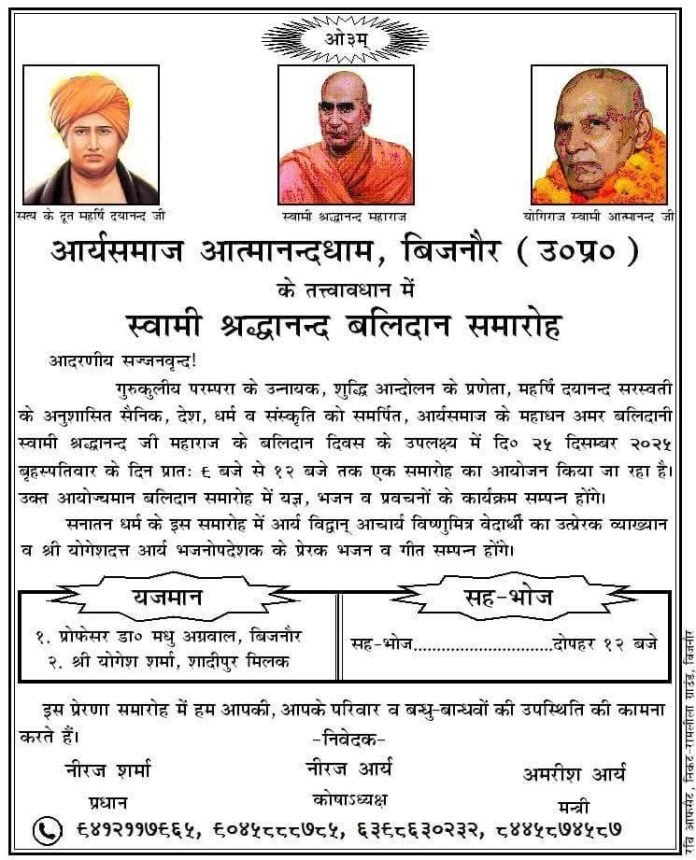 ओ३म्
सत्य के दूत महर्षि दयानन्द जी
स्वामी श्रद्धानन्द महाराज
योगिराज स्वामी आत्मानन्द जी
आर्यसमाज आत्मानन्दधाम, बिजनौर ( उ०प्र० )
के तत्त्वावधान में
स्वामी श्रद्धानन्द बलिदान समारोह
आदरणीय सज्जनवृन्द!
गुरुकुलीय परम्परा के उन्नायक, शुद्धि आन्दोलन के प्रणेता, महर्षि दयानन्द सरस्वती
के अनुशासित सैनिक, देश, धर्म व संस्कृति को समर्पित, आर्यसमाज के महाधन अमर बलिदानी
स्वामी श्रद्धानन्द जी महाराज के बलिदान दिवस के उपलक्ष्य में दि० २५ दिसम्बर २०२५
बृहस्पतिवार के दिन प्रातः ९ बजे से १२ बजे तक एक समारोह का आयोजन किया जा रहा है।
उक्त आयोज्यमान बलिदान समारोह में यज्ञ, भजन व प्रवचनों के कार्यक्रम सम्पन्न होंगे।
सनातन धर्म के इस समारोह में आर्य विद्वान् आचार्य विष्णुमित्र वेदार्थी का उत्प्रेरक व्याख्यान
व श्री योगेशदत्त आर्य भजनोपदेशक के प्रेरक भजन व गीत सम्पन्न होंगे।
यजमान
१. प्रोफेसर डा० मधु अग्रवाल, बिजनौर
२. श्री योगेश शर्मा, शादीपुर मिलक
सह-भोज
सह-भोज..............................दोपहर १२ बजे
इस प्रेरणा समारोह में हम आपकी, आपके परिवार व बन्धु-बान्धवों की उपस्थिति की कामना
करते हैं।
-निवेदक-
नीरज शर्मा
प्रधान
नीरज आर्य
कोषाऽध्यक्ष
अमरीश आर्य
मन्त्री
९४१२११७९६५, ९०४५८८८७८५, ६३९८६३०२३२, ८४४५८७४५८७
रवि आफसेट, निकट-रामलीला ग्राउंड, बिजनौर